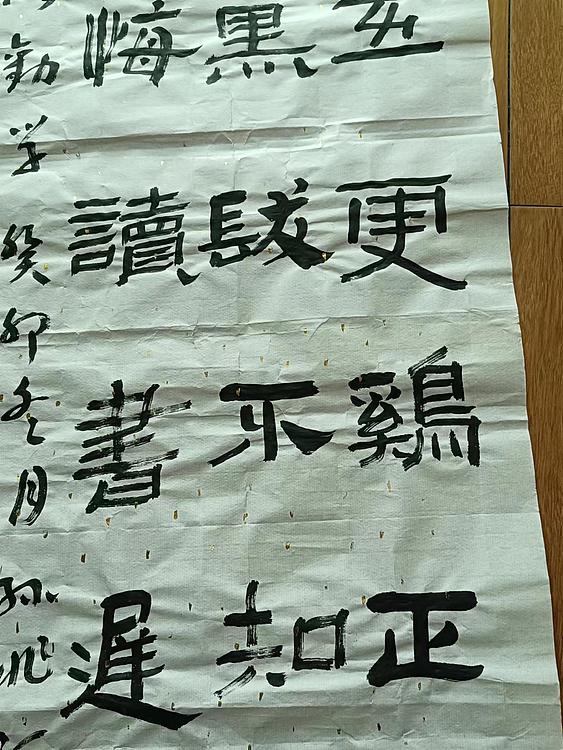 五更鷄正
黑髮不知
悔讀書遲
勸学癸卯冬月孫